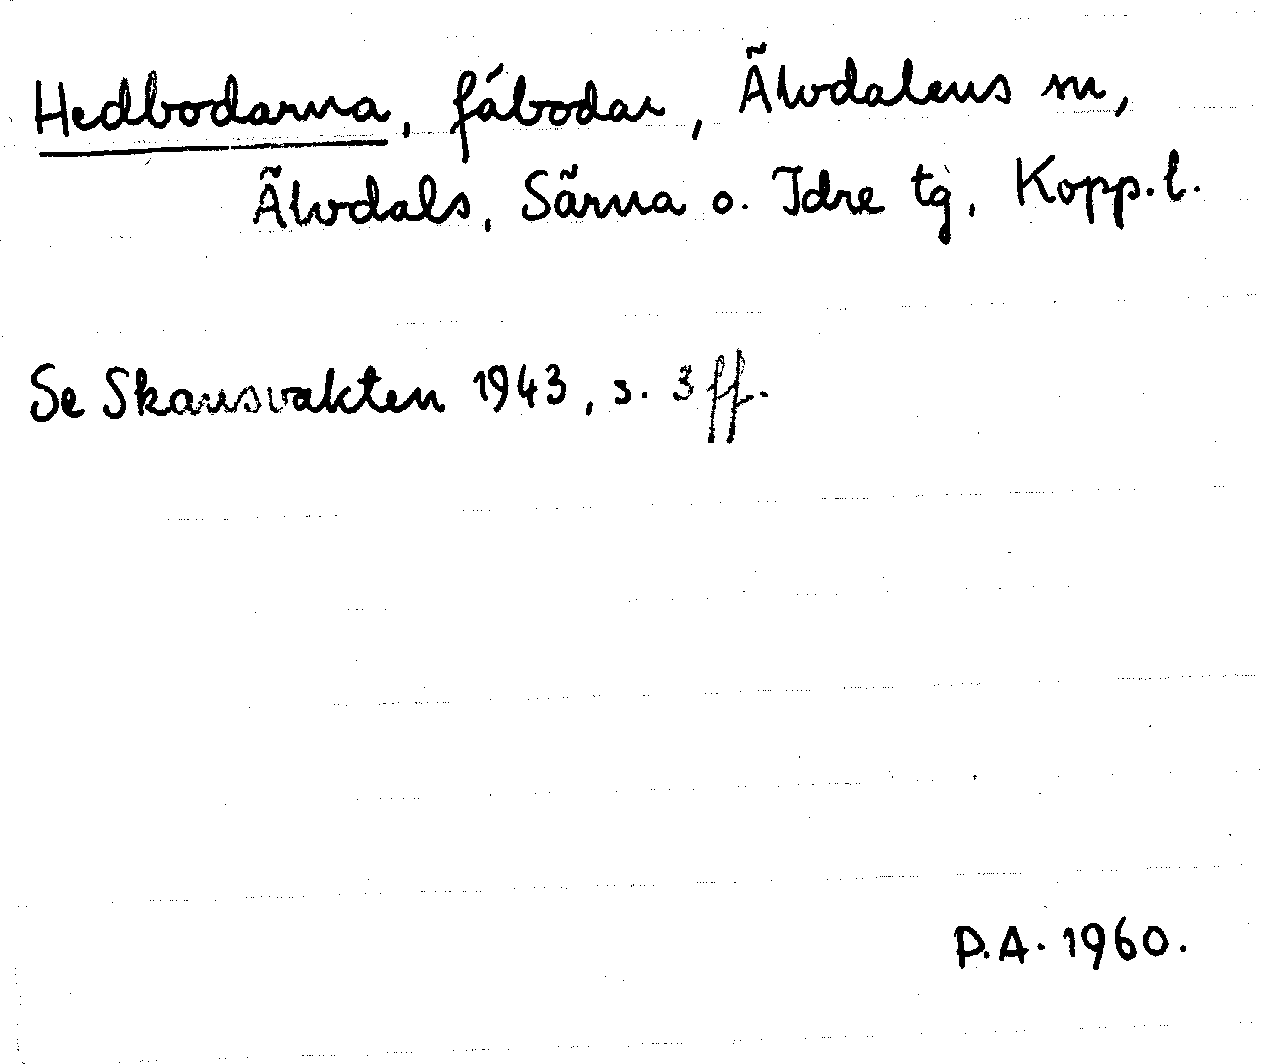 Hedbodarna, fäbodar, Älvdalens sn,
Älvdals, Särna o. Idre tg, Kopp.l.
Se Skansvakten 1943, s. 3 ff.
P.A. 1960.